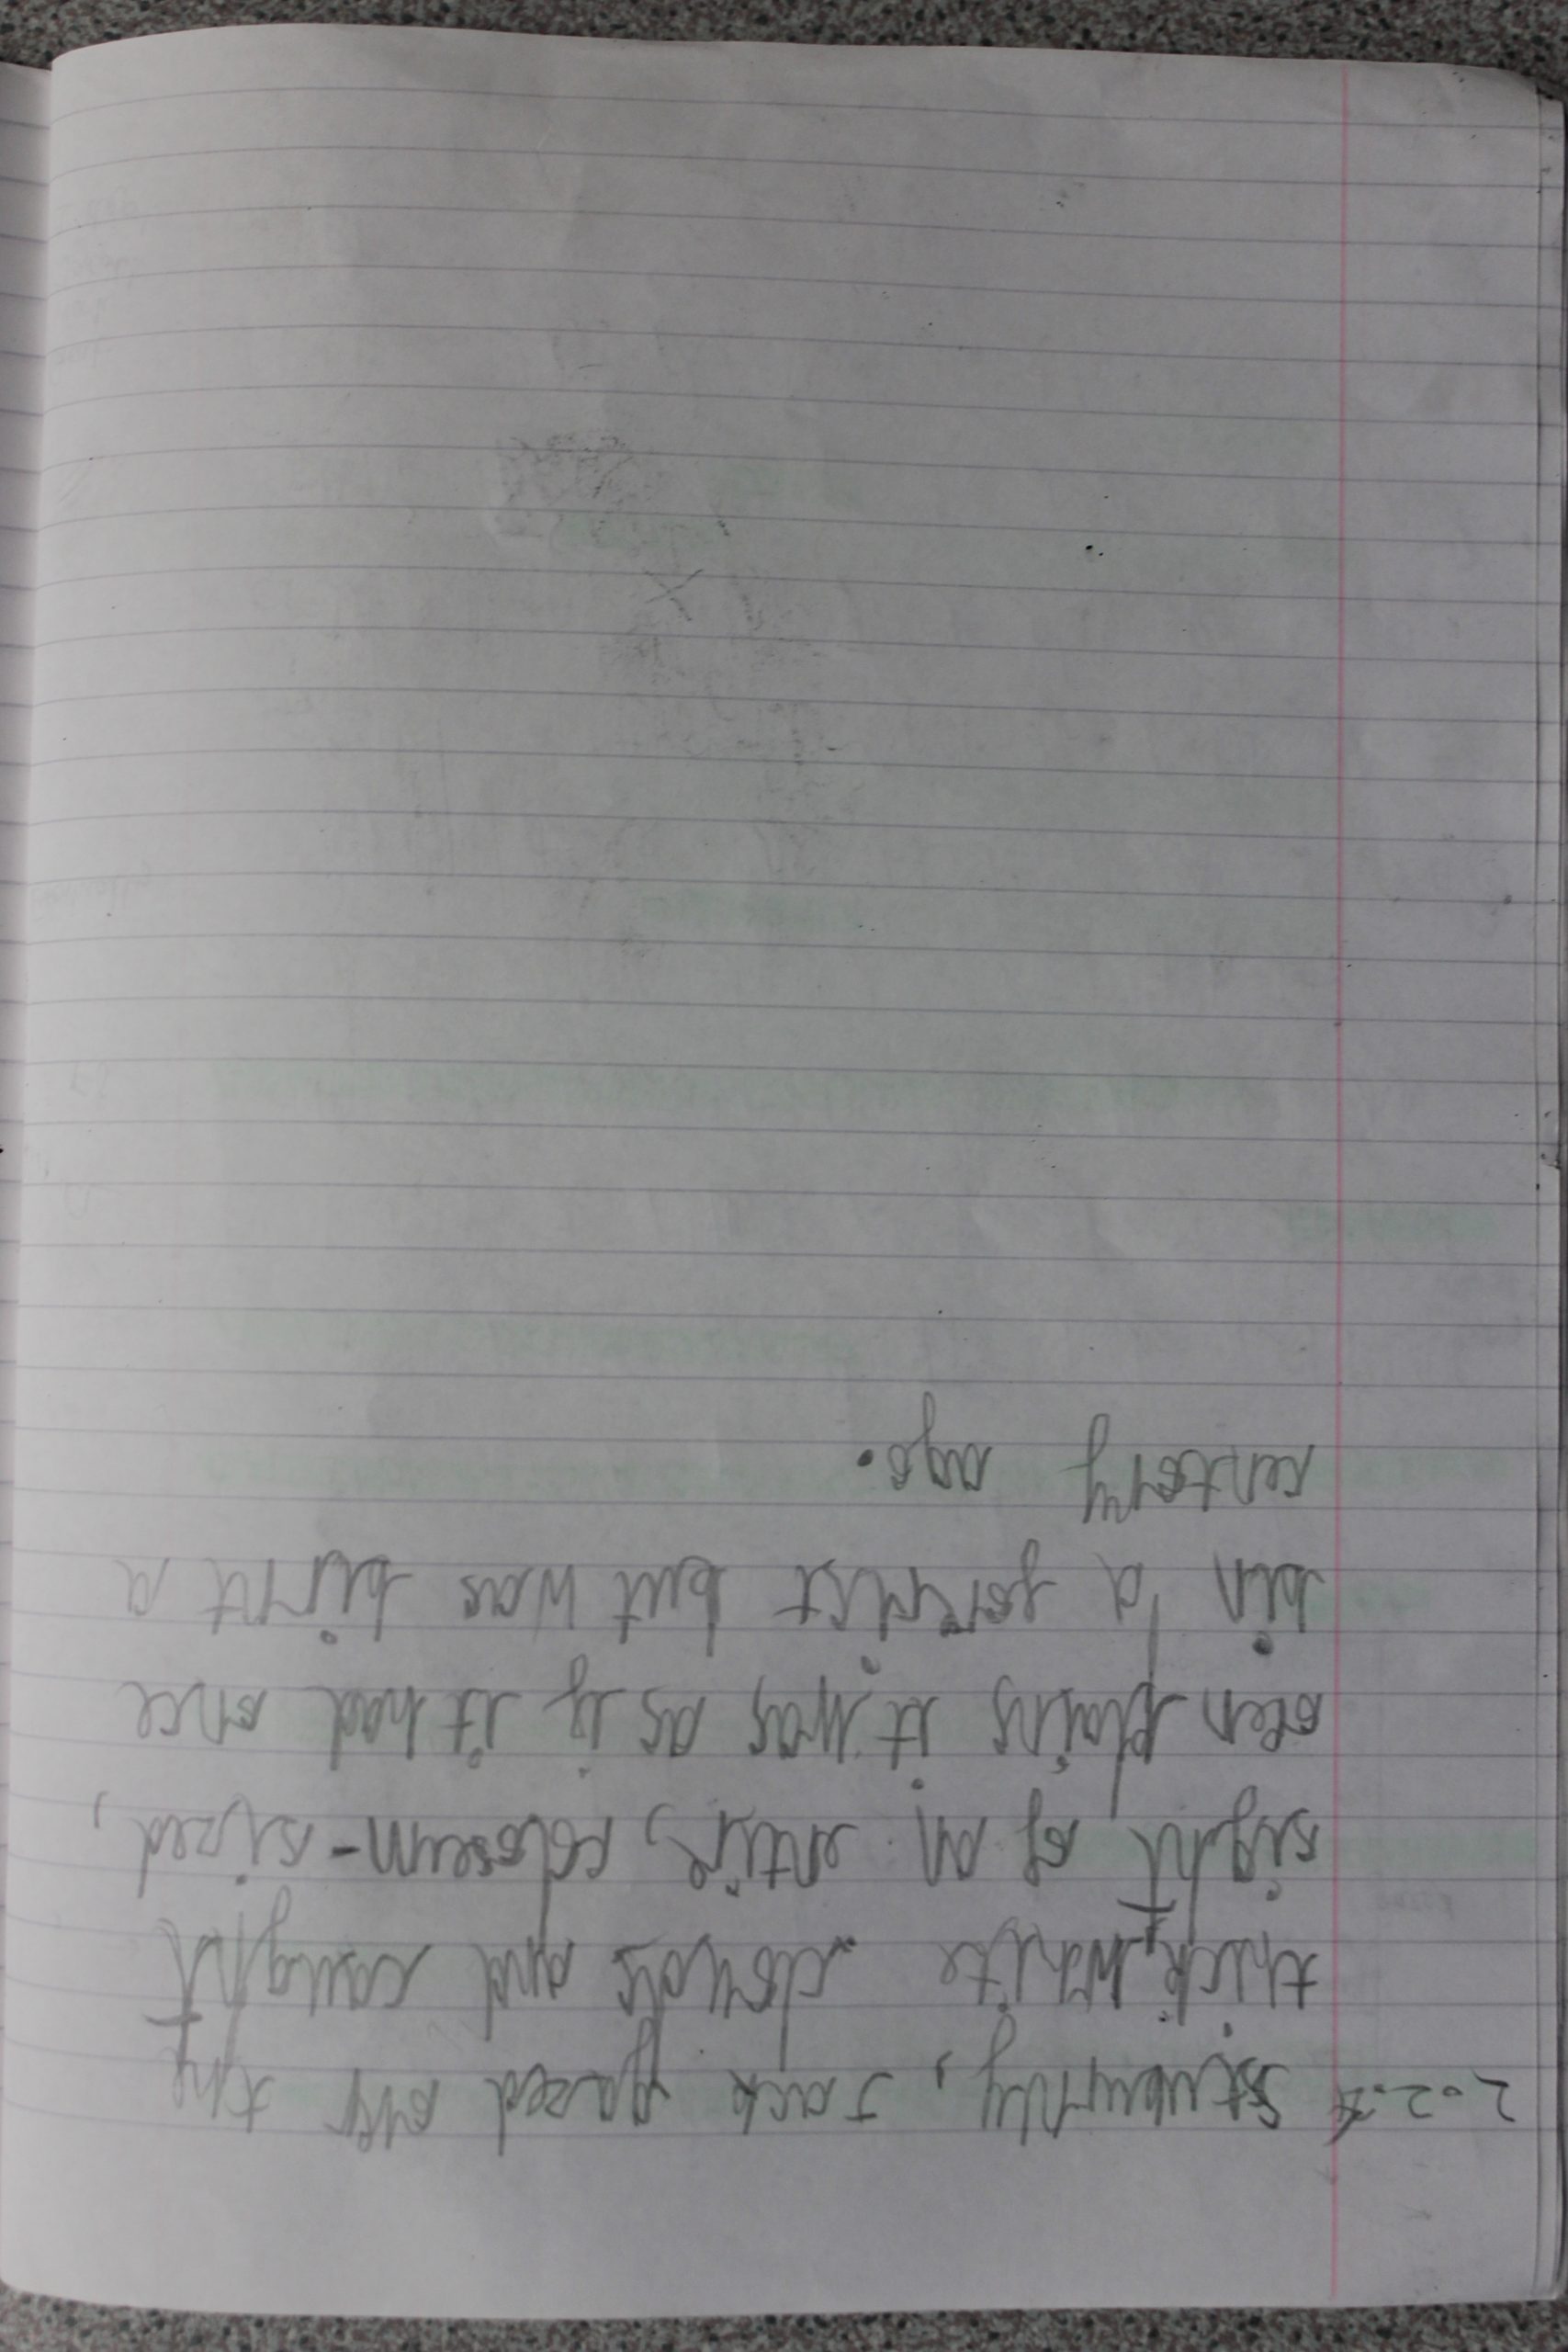 2-2-x Stuburnly, Jack gazed ovr the
thick, white clouds and caught
sight of an entire, coloseum-sized,
oen plains it was as if it had once
bin a forest but was birnt a
centory ago.